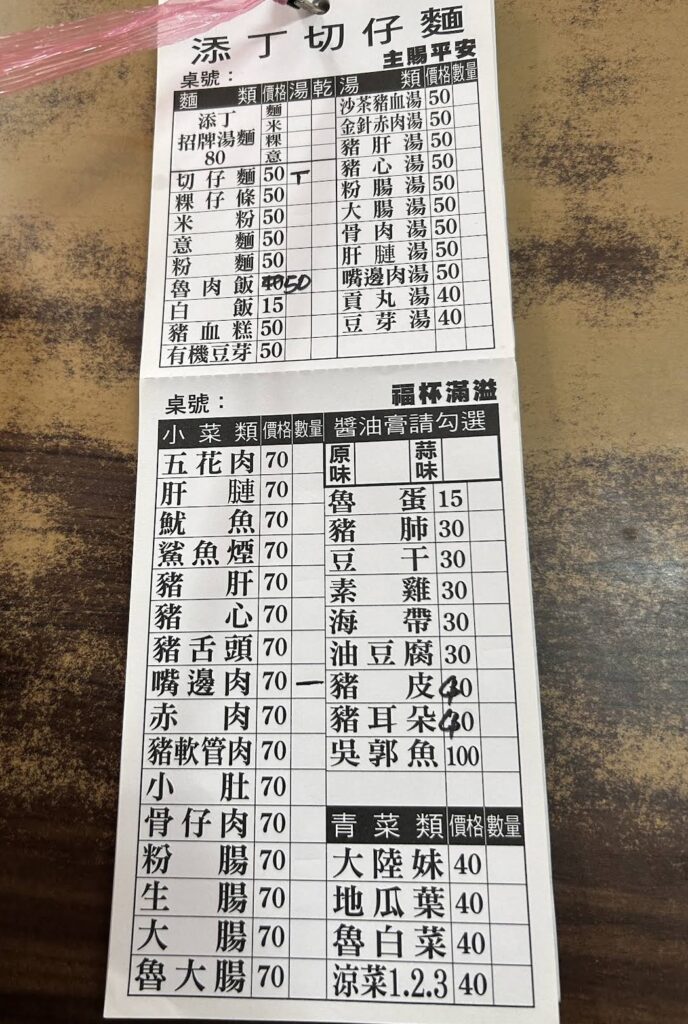 添丁切仔麵
主賜平安
桌號：
麵類 價格 湯 乾
添丁招牌湯麵 80 麵 米 粿 意
切仔麵 50 T
粿仔條 50
米粉 50
意麵 50
粉麵 50
魯肉飯 40 50
白飯 15
豬血糕 50
有機豆芽 50
湯類 價格 數量
沙茶豬血湯 50
金針赤肉湯 50
豬肝湯 50
豬心湯 50
粉腸湯 50
大腸湯 50
骨肉湯 50
肝膣湯 50
嘴邊肉湯 50
貢丸湯 40
豆芽湯 40
福杯滿溢
桌號：
小菜類 價格 數量
五花肉 70
肝膣 70
魷魚 70
鯊魚煙 70
豬肝 70
豬心 70
豬舌頭 70
嘴邊肉 70 一
赤肉 70
豬軟管肉 70
小肚 70
骨仔肉 70
粉腸 70
生腸 70
大腸 70
魯大腸 70
醬油膏請勾選
原味 蒜味
魯蛋 15
豬肺 30
豆干 30
素雞 30
海帶 30
油豆腐 30
豬皮 40
豬耳朵 40
吳郭魚 100
青菜類 價格 數量
大陸妹 40
地瓜葉 40
魯白菜 40
涼菜1.2.3 40